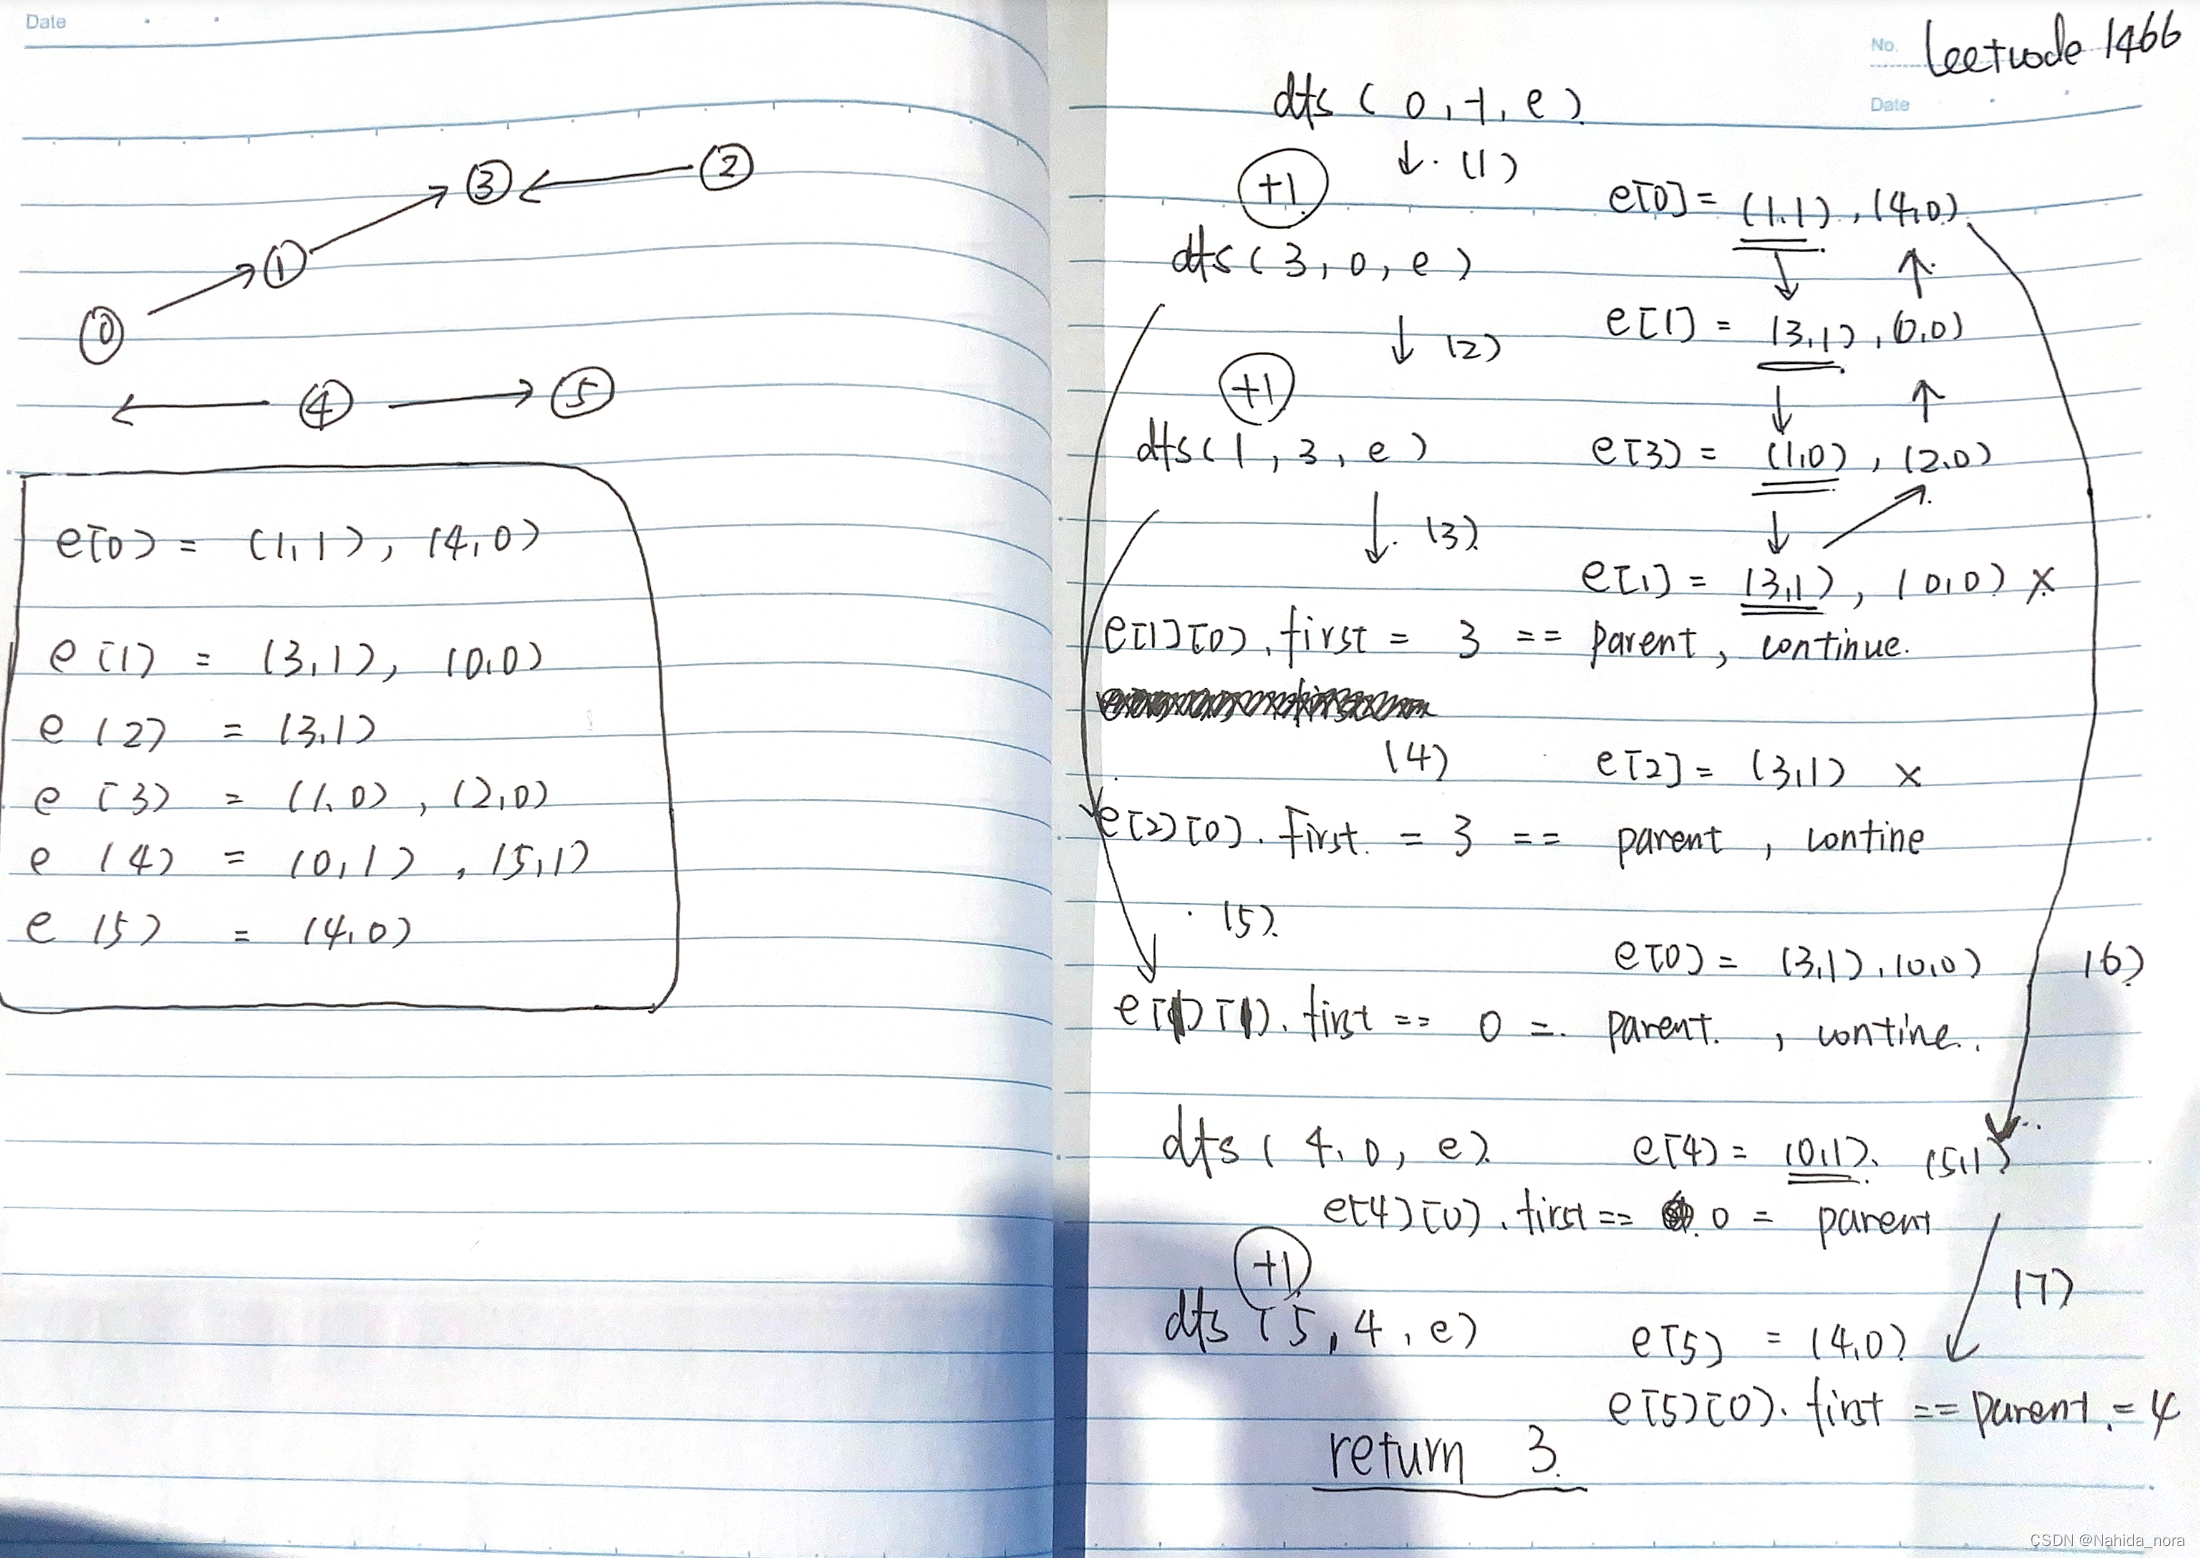 Date
③ ②
①
⓪
④ ⑤
e[0] = (1,1), (4,0)
e[1] = (3,1), (0,0)
e[2] = (3,1)
e[3] = (1,0), (2,0)
e[4] = (0,1), (5,1)
e[5] = (4,0)
No. leetcode 1466
Date
dfs(0,-1,e)
(1)
+1
e[0] = (1,1), (4,0)
dfs(3,0,e)
(2)
e[1] = (3,1), (0,0)
+1
dfs(1,3,e)
e[3] = (1,0), (2,0)
(3)
e[1] = (3,1), (0,0) ×
e[1][0].first = 3 == parent, continue.
(4) e[2] = (3,1) ×
e[2][0].first = 3 == parent, contine
(5)
e[0] = (3,1), (0,0) (6)
e[1][1].first == 0 = parent, contine.
dfs(4,0,e) e[4] = (0,1), (5,1)
e[4][0].first == 0 = parent
+1
(7)
dfs(5,4,e) e[5] = (4,0)
e[5][0].first == parent = 4
return 3
CSDN @Nahida_nora